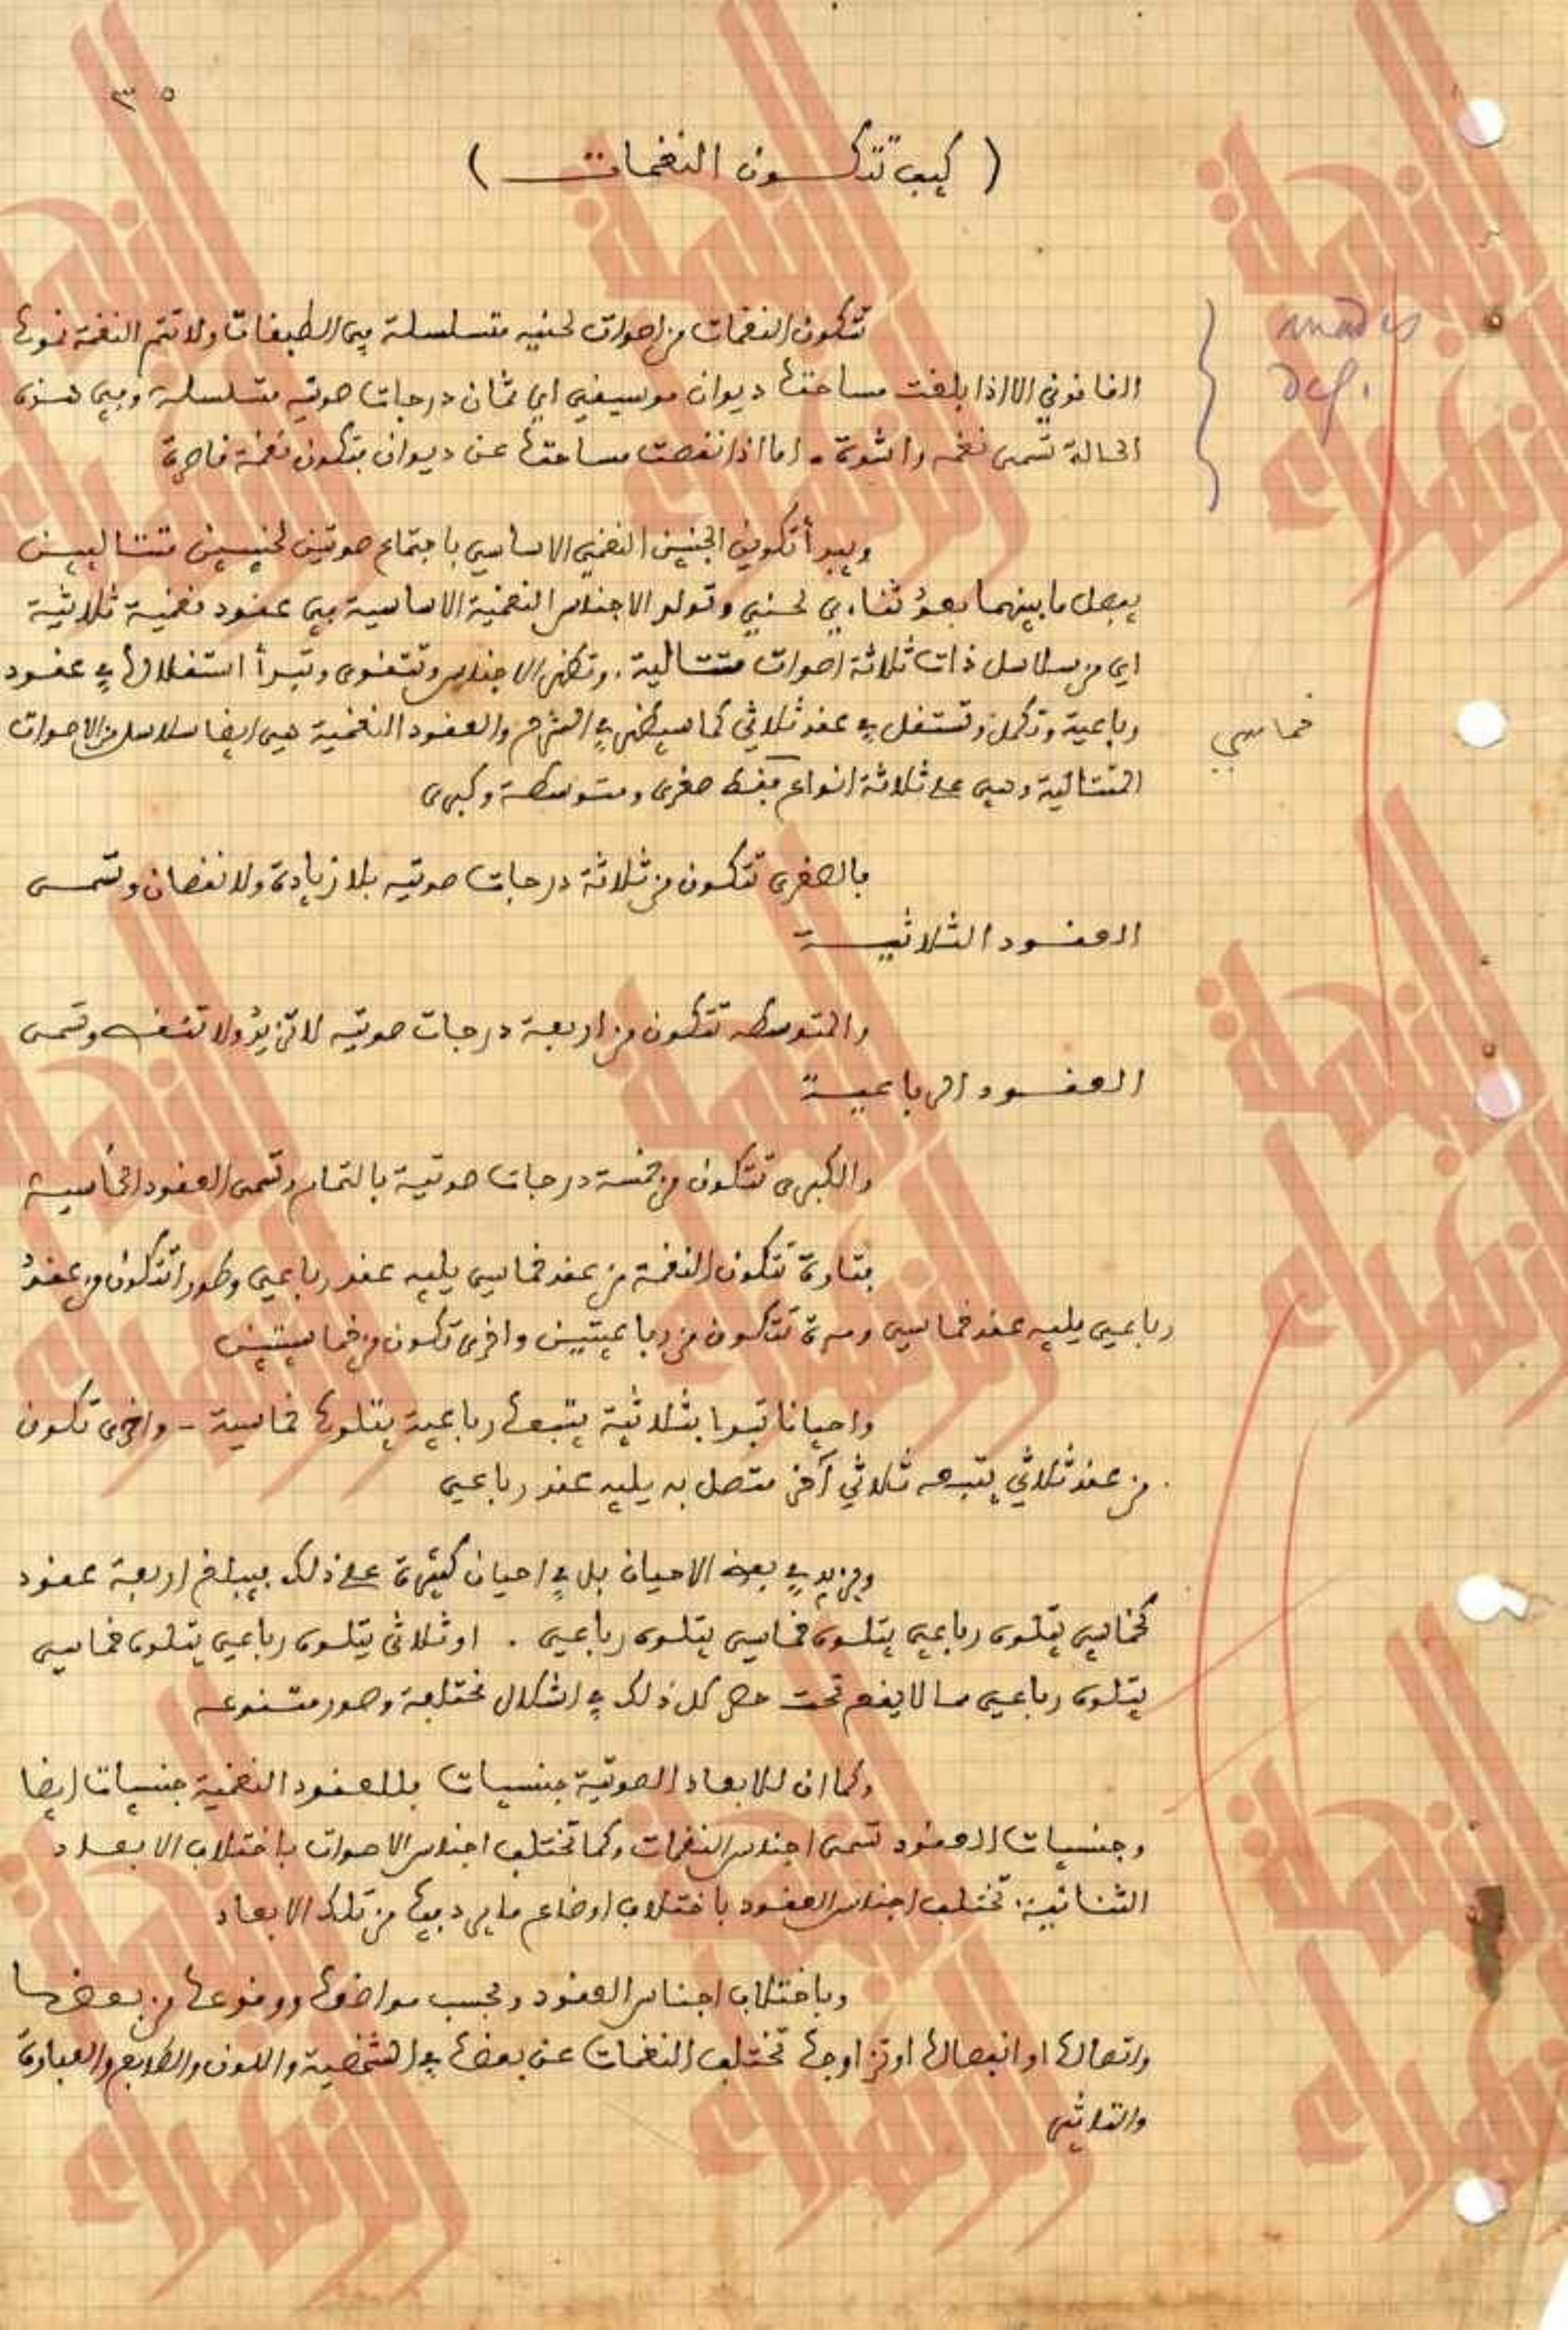 ٣٥
( كيف تتكون النغمات )
تتكون النغمات من اصوات لحنيه متسلسلة في الطبقات ولا تتم النغمة نموها
القانوني الا اذا بلغت مساحتها ديوان موسيقي اي ثمان درجات صوتيه متسلسلة وفي هذه
الحالة تسمى نغمه راشدة - اما اذا نقصت مساحتها عن ديوان فتكون نغمة قاصرة
ويبدأ تكوين الجنين النغمي الاساسي باجتماع صوتين لحنيين متتاليين
يفصل ما بينهما بعد ثناءي لحني وتولد الاجناس النغمية الاساسية في عقود نغمية ثلاثية
اي من سلاسل ذات ثلاثة اصوات متتالية . وتظهر الاجناس وتتقوى وتبدأ استقلالها في عقود
رباعية وتكمل وتستقل في عقد ثلاثي كما سيظهر في الشرح والعقود النغمية هي ايضا سلاسل من الاصوات
خماسي
المتتالية وهي على ثلاثة انواع فقط صغرى ومتوسطة وكبرى
فالصغرى تتكون من ثلاثة درجات صوتيه بلا زيادة ولا نقصان وتسمى
العقود الثلاثية
والمتوسطه تتكون من اربعة درجات صوتيه لا تزيد ولا تنقص وتسمى
العقود الرباعية
والكبرى تتكون من خمسة درجات صوتية بالتمام وتسمى العقود الخماسية
فتارة تتكون النغمة من عقد خماسي يليه عقد رباعي وطورا تتكون من عقد
رباعي يليه عقد خماسي ومرة تتكون من رباعيتين واخرى تكون من خماسيتين
واحيانا تبدا بثلاثية يتبعها رباعية يتلوها خماسية - واخرى تكون
من عقد ثلاثي يتبعه ثلاثي آخر متصل به يليه عقد رباعي
ويزيد في بعض الاحيان بل في احيان كثيرة على ذلك فيبلغ اربعة عقود
كخماسي يتلوه رباعي يتلوه خماسي يتلوه رباعي . او ثلاثي يتلوه رباعي يتلوه خماسي
يتلوه رباعي مما لا يقع تحت حصر كل ذلك في اشكال مختلفة وصور متنوعه
وكما ان للابعاد الصوتية جنسيات فللعقود النغمية جنسيات ايضا
وجنسيات العقود تسمى اجناس النغمات وكما تختلف اجناس الاصوات باختلاف الابعاد
الثنائية . تختلف اجناس العقود باختلاف اوضاع ما يرد فيها من تلك الابعاد
وباختلاف اجناس العقود وبحسب مواضعها ووقوعها من بعضها
واتصالها او انفصالها او تزاوجها تختلف النغمات عن بعضها في الشخصية واللون والطابع والعبارة
والتاثير